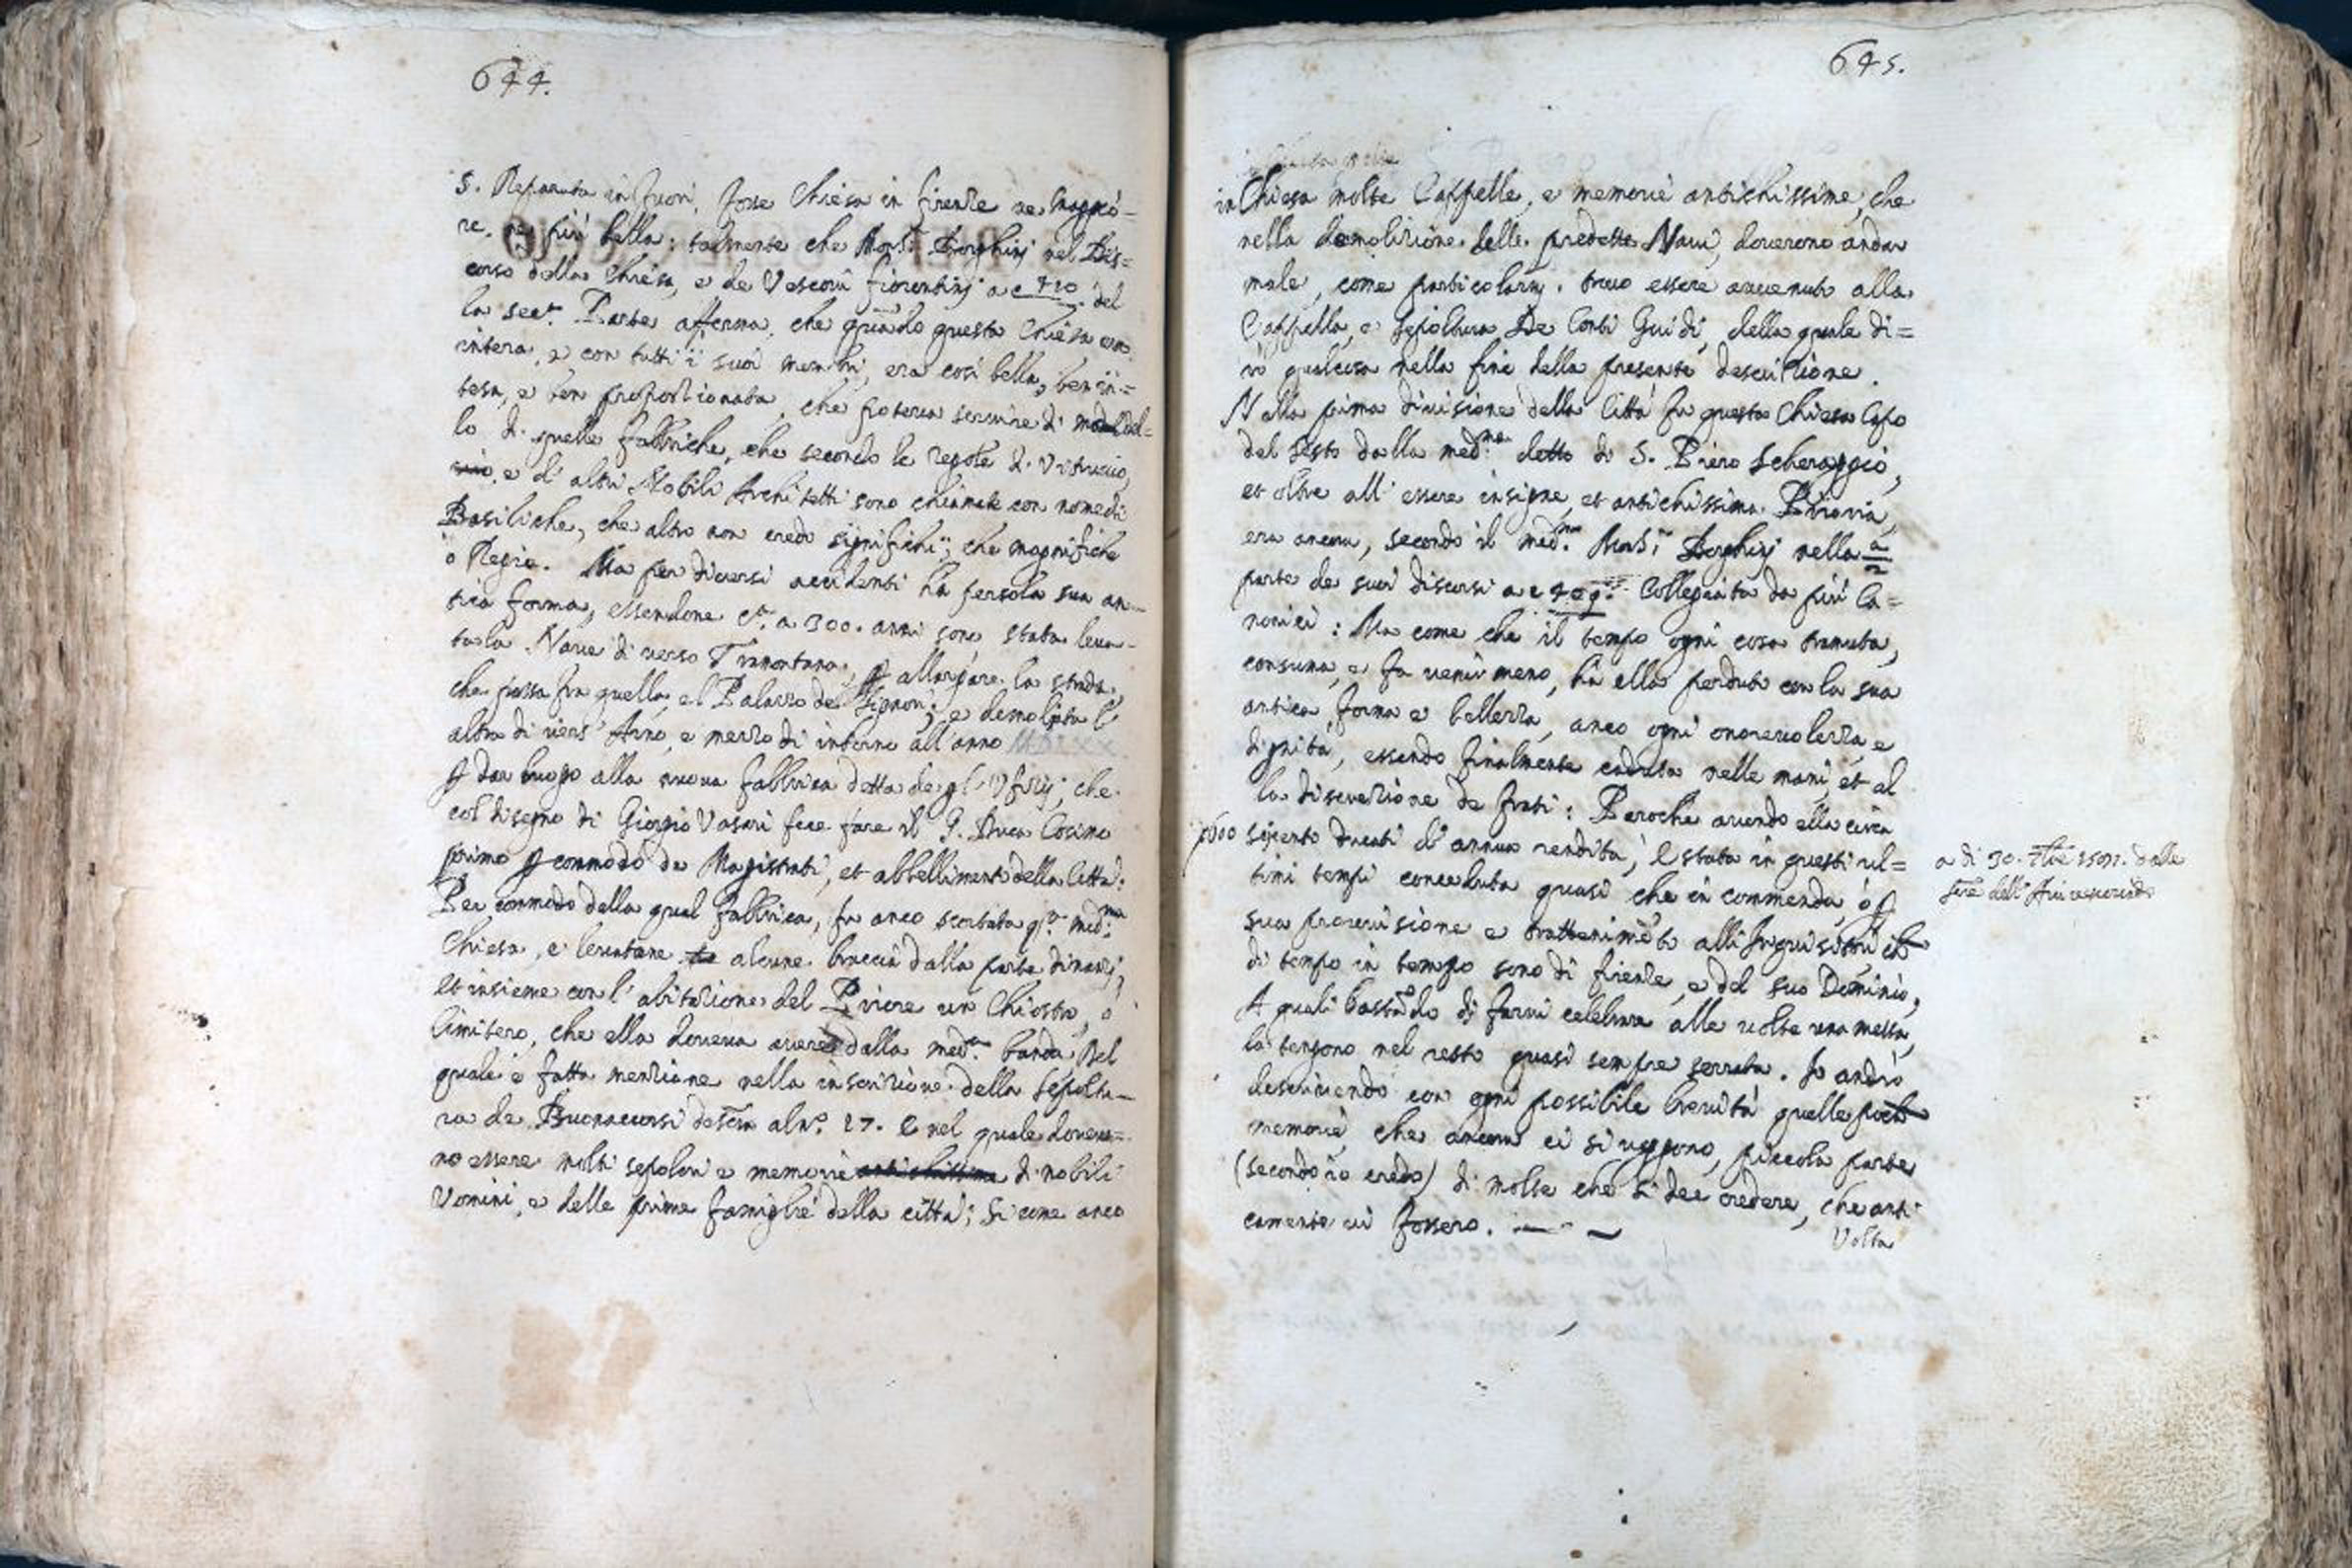 644.
S. Reparata in fuori, fosse Chiesa in firenze ne maggio-
re, ne più bella: talmente che Mons.r Borghinj nel Dis=
corso della Chiesa, e de Vescovi fiorentinj a c 410. del
la sec.a Parte afferma, che quãdo questa Chiesa era
intera, e con tutti i suoi membri, era così bella, ben in=
tesa, e ben proportionata, che poteva servire di model=
lo di quelle fabbriche, che secondo le regole di Vitruvio,
e d' altri Nobili Architetti sono chiamate con nome di
Basiliche, che altro non credo significhi, che magnifiche
o Regie. Ma per diversi accidenti ha persola sua an-
tica forma, essendone c.a a 300. anni sono, stata leva-
ta la Nave di verso Tramontana, p allargare la strada,
che passa fra quella, el Palazzo de Signori; e demolita l'
altra di vers' Arno, e mezzo dì intorno all'anno MDLXX
p dar luogo alla nuova fabbrica detta de gl' Ufizij, che
col disegno di Giorgio Vasari fece fare il G. Duca Cosimo
primo p commodo de Magistrati, et abbellimento della Città:
Per commodo della qual fabbrica, fu anco scortata q.a med.ma
Chiesa, e levatane alcune braccia dalla parte dinanzi,
et insieme con l' abitazione del Priore un Chiostro, ò
Cimitero, che ella doveva avere dalla med.a banda, Del
quale è fatta menzione nella inscrizione della Sepoltu-
ra de Buonaccorsi al n.o 27. e nel quale doveva=
no essere molti sepolcri e memorie antichissime di nobili
Uomini, e delle prime famiglie della città; Si come anco
645.
in Chiesa molte Cappelle, e memorie antichissime, che
nella demolizione delle predette Navi, doverono andar
male, come particolarm. truovo essere avvenuto alla
Cappella, e sepoltura De Conti Guidi, della quale di=
rò qualcosa nella fine della presente descrizione.
Nella prima divisione della Città fu questa Chiesa Capo
del Sesto dalla med.ma detto di S. Piero Scheraggio,
et oltre all' essere insigne, et antichissima Prioria,
era ancora, secondo il med.mo Mons.r Borghinj nella 2.a
parte de suoi discorsi a c 409. Collegiata da più Ca=
nonici: Ma come che il tempo ogni cosa tramuta,
consuma, e fa venir meno, ha ella perduto con la sua
antica forma e bellezza, anco ogni onorevolezza, e
dignità, essendo finalmente caduta nelle mani, et al
la discrezione de frati: Peroche avendo ella circa
p600 secento ducati d' annua rendita, è stata in questi ul=
timi tempi conceduta quasi che in commenda, ò p
sua provvisione e trattenimẽto alli Inquisitori che
di tempo in tempo sono di firenze, e del suo Dominio,
A quali bastãdo di farvi celebrar alle volte una messa,
la tengono nel resto quasi sempre serrata. Io andrò
descrivendo con ogni possibile brevità quelle poche
memorie, che ancora ci si veggono, piccola parte
(secondo io credo) di molte che si dee credere, che anti
camente vi fossero.
Volta
a di 30. 7bre 1591. dalle
scre dell' Arcivescovado